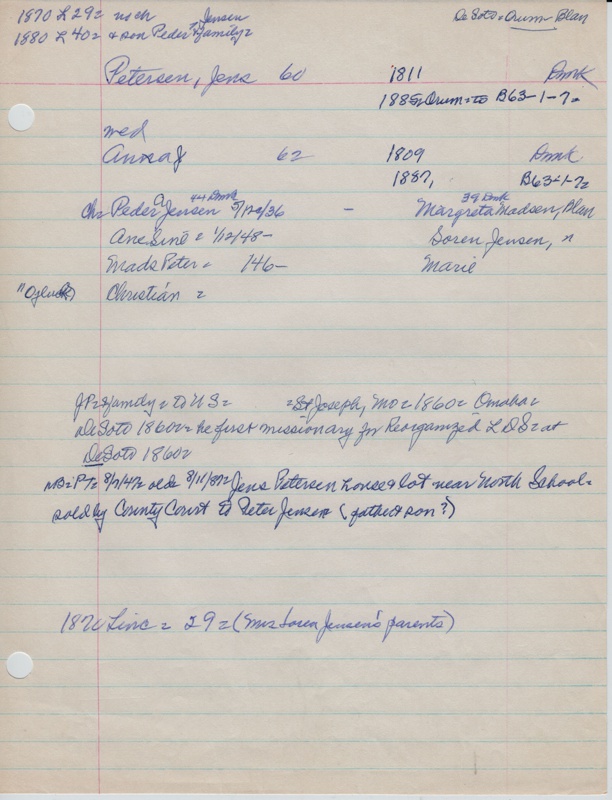 1870 L 29= no ch DeSoto = Orum - Blan
1880 L 40= & son Peder Jensen & family =
Petersen, Jens 60 1811 Dmk
1885= Orum = to B63-1-7=
med
62 1809 Dmk
1887, B63-1-7=
ch= Peder Jensen 44 Dmk 5/120/36 - Margreta Madsen, Blan 39 Dmk
Ane Sine = 1/12/48 - Soren Jensen, "
Mads Peter = 146- Marie
Christian =
JP= & family = to US= =St Joseph, Mo= 1860= Omaha=
DeSoto 1860= he first missionary for Reorganized LDS= at
DeSoto 1860=
Jens Petersen house & lot near North School=
sold by County Court to Peter Jensen (father & son?)
1870 Linc = 29 = (Mrs Soren Jensen's parents)